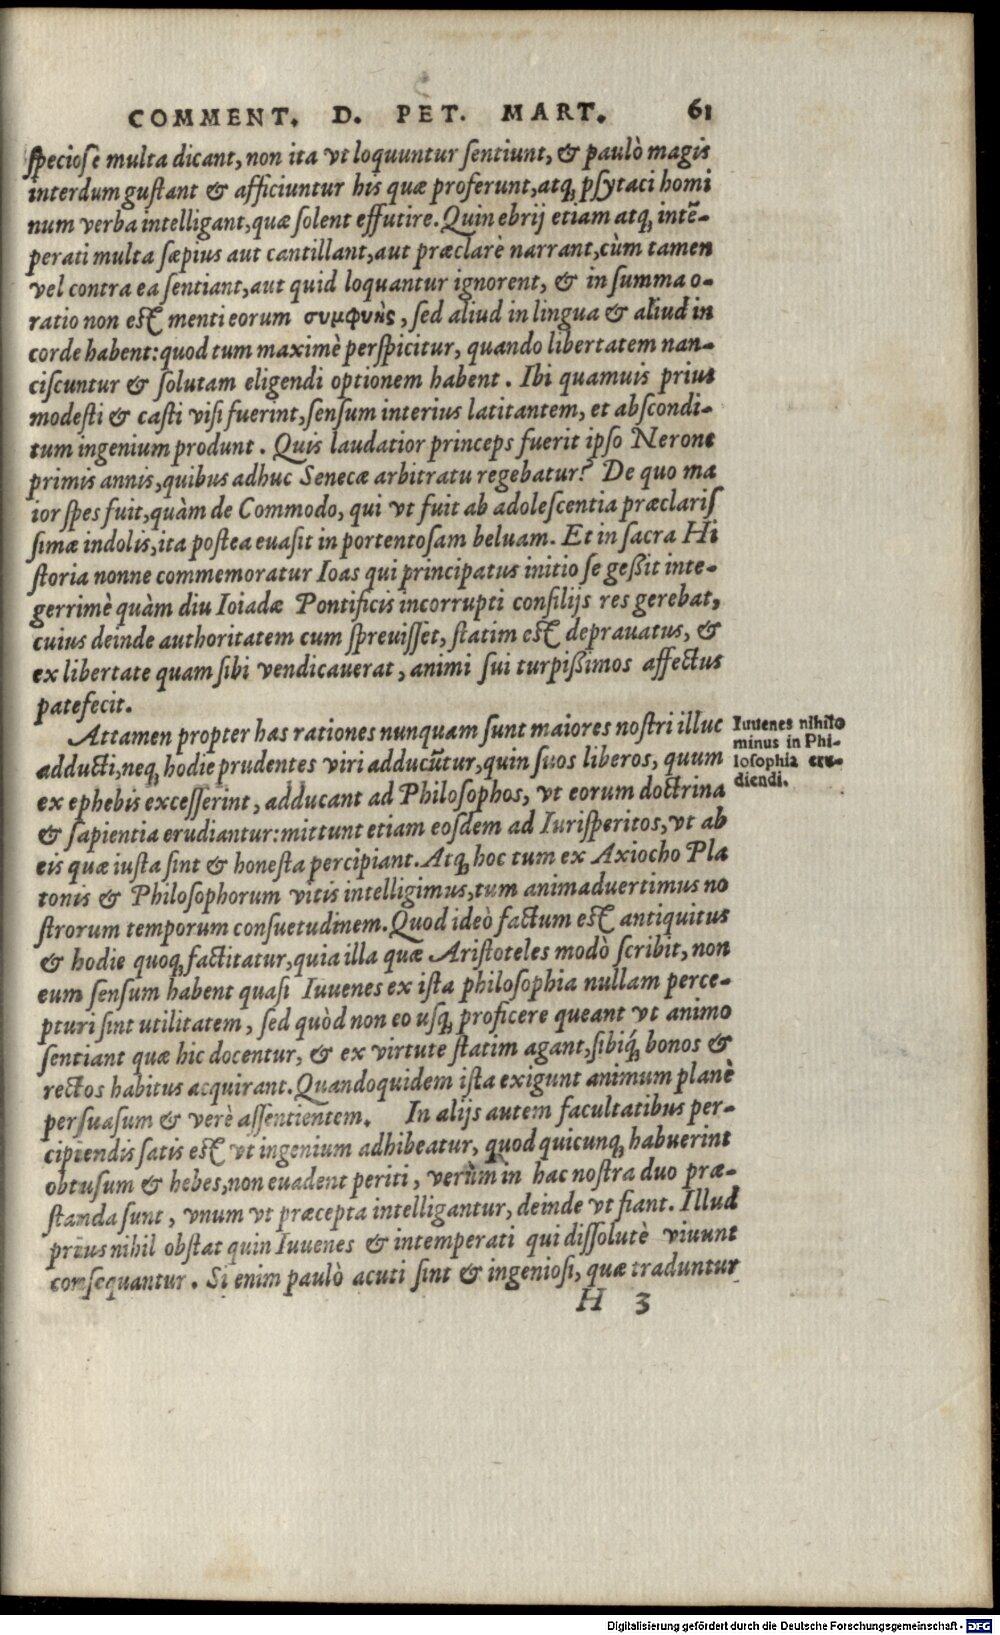 COMMENT. D. PET. MART. 61
ſpecioſe multa dicant, non ita vt loquuntur ſentiunt, & paulò magis
interdum guſtant & afficiuntur his quæ proferunt, atq, pſytaci homi
num verba intelligant, quæ ſolent effutire. Quin ebrij etiam atq, intẽ-
perati multa ſæpius aut cantillant, aut præclarè narrant, cùm tamen
vel contra ea ſentiant, aut quid loquantur ignorent, & in ſumma o-
ratio non eſt menti eorum συμφυὴς, ſed aliud in lingua & aliud in
corde habent: quod tum maximè perſpicitur, quando libertatem nan-
ciſcuntur & ſolutam eligendi optionem habent. Ibi quamuis prius
modeſti & caſti viſi fuerint, ſenſum interius latitantem, et abſcondi-
tum ingenium produnt. Quis laudatior princeps fuerit ipſo Nerone
primis annis, quibus adhuc Senecæ arbitratu regebatur? De quo ma
ior ſpes fuit, quàm de Commodo, qui vt fuit ab adoleſcentia præclariſ
ſimæ indolis, ita poſtea euaſit in portentoſam beluam. Et in ſacra Hi
ſtoria nonne commemoratur Ioas qui principatus initio ſe geßit inte-
gerrimè quàm diu Ioiadæ Pontificis incorrupti conſilijs res gerebat,
cuius deinde authoritatem cum ſpreuiſſet, ſtatim eſt deprauatus, &
ex libertate quam ſibi vendicauerat, animi ſui turpißimos affectus
patefecit.
Attamen propter has rationes nunquam ſunt maiores noſtri illuc
adducti, neq, hodie prudentes viri adducũtur, quin ſuos liberos, quum
ex ephebis exceſſerint, adducant ad Philoſophos, vt eorum doctrina
& ſapientia erudiantur: mittunt etiam eoſdem ad Iuriſperitos, vt ab
eis quæ iuſta ſint & honeſta percipiant. Atq, hoc tum ex Axiocho Pla
tonis & Philoſophorum vitis intelligimus, tum animaduertimus no
ſtrorum temporum conſuetudinem. Quod ideò factum eſt antiquitus
& hodie quoq, factitatur, quia illa quæ Ariſtoteles modò ſcribit, non
eum ſenſum habent quaſi Iuuenes ex iſta philoſophia nullam perce-
pturi ſint utilitatem, ſed quòd non eo uſq, proficere queant vt animo
ſentiant quæ hic docentur, & ex virtute ſtatim agant, ſibiq́, bonos &
rectos habitus acquirant. Quandoquidem iſta exigunt animum planè
perſuaſum & verè aſſentientem. In alijs autem facultatibus per-
cipiendis ſatis eſt vt ingenium adhibeatur, quod quicunq, habuerint
obtuſum & hebes, non euadent periti, verùm in hac noſtra duo præ-
ſtanda ſunt, vnum vt præcepta intelligantur, deinde vt fiant. Illud
prius nihil obſtat quin Iuuenes & intemperati qui diſſolutè viuunt
conſequantur. Si enim paulò acuti ſint & ingenioſi, quæ traduntur
H 3
Iuuenes nihilo
minus in Phi-
loſophia eru-
diendi.
Digitalisierung gefördert durch die Deutsche Forschungsgemeinschaft - DFG